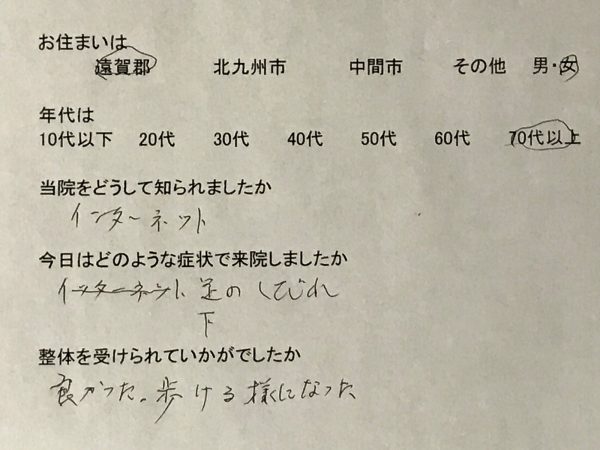 お住まいは
遠賀郡 北九州市 中間市 その他 男・女
年代は
10代以下 20代 30代 40代 50代 60代 70代以上
当院をどうして知られましたか
インターネット
今日はどのような症状で来院しましたか
インターネット 足のしびれ
下
整体を受けられていかがでしたか
良かった。歩ける様になった